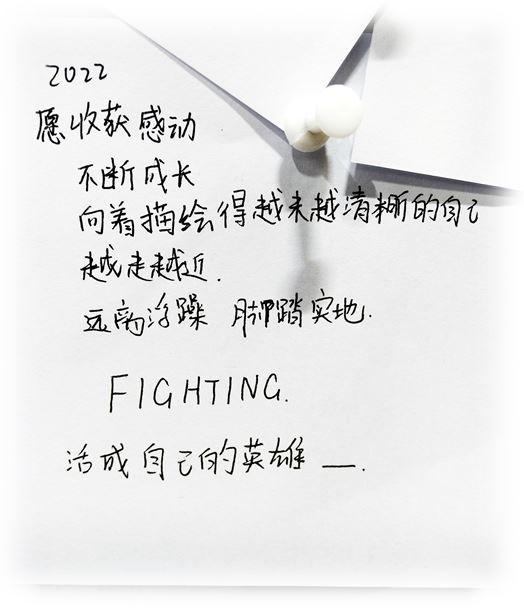 2022
愿收获感动
不断成长
向着描绘得越来越清晰的自己
越走越近.
远离浮躁 脚踏实地.
FIGHTING.
活成自己的英雄 —.